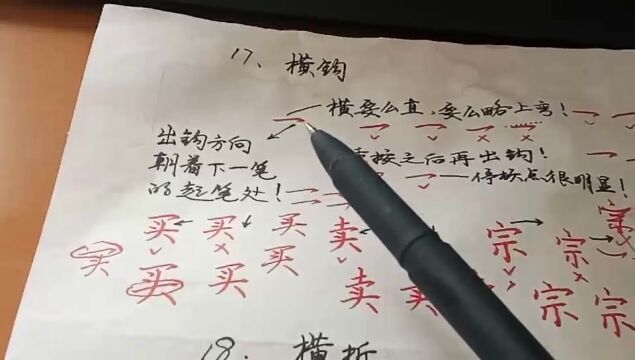 17、横钩
横要么直、要么略上弯！
出钩方向
朝着下一笔
的起笔处！
按之后再出钩！
停顿点很明显！
买 买 买 卖 宗 宗 宗
买 买 买 买 卖 卖 宗 宗
18. 横折